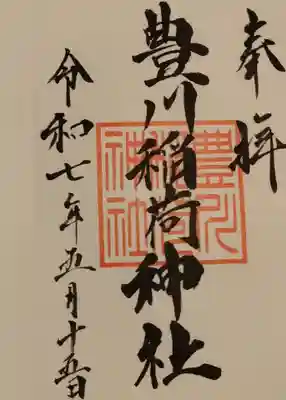 奉拝
豊川稲荷神社
豊川稲荷神社
令和七年五月十五日